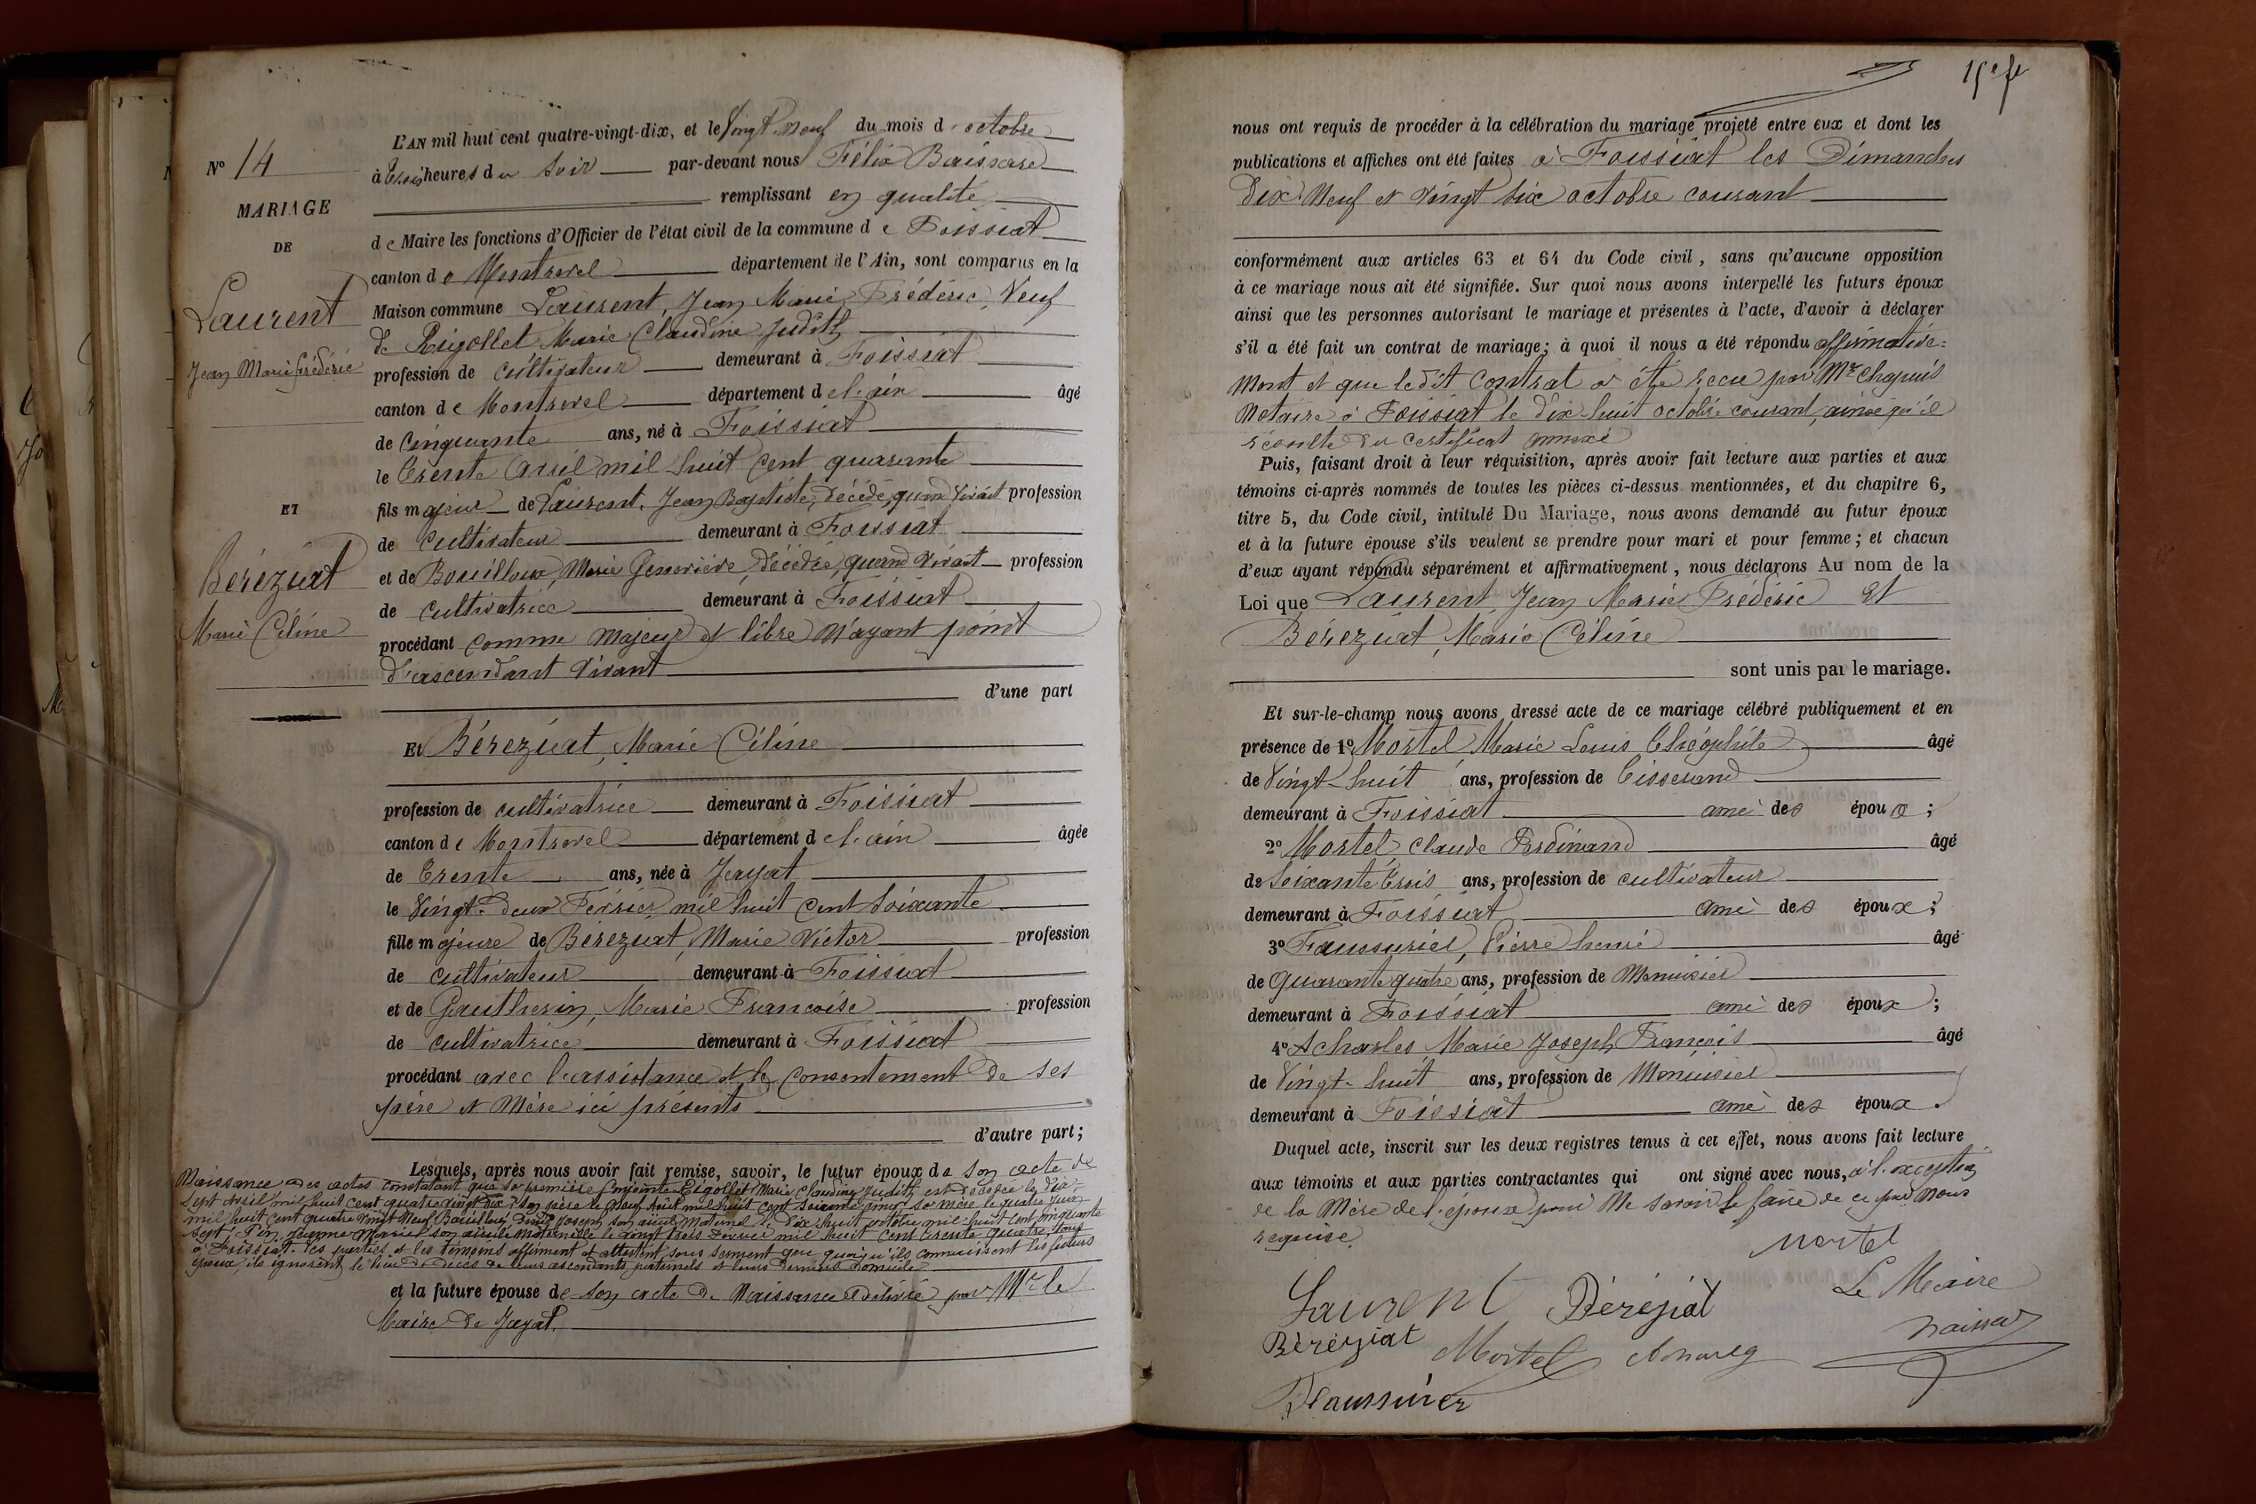 N° 14
MARIAGE
DE
Laurent
Jean Marie frédéric
ET
Béréziat
Marie Céline
L'AN mil huit cent quatre-vingt-dix, et le Vingt Neuf du mois d'octobre
à trois heures du Soir par-devant nous Félix Baissard
remplissant en qualité
de Maire les fonctions d'Officier de l'état civil de la commune de Foissiat
canton de Montrevel département de l'Ain, sont comparus en la
Maison commune Laurent, Jean Marie Frédéric, Veuf
de Rigollet Marie Claudine Judith
profession de cultivateur demeurant à Foissiat
canton de Montrevel département de l'ain âgé
de Cinquante ans, né à Foissiat
le trente Avril mil huit cent quarante
fils majeur de Laurent, Jean Baptiste, décédé, quand vivait profession
de cultivateur demeurant à Foissiat
et de Bouilloux, Marie Geneviève, décédée, quand vivait profession
de cultivatrice demeurant à Foissiat
procédant comme majeur et libre n'ayant point
d'ascendant vivant
d'une part
Et Béreziat, Marie Céline
profession de cultivatrice demeurant à Foissiat
canton de Montrevel département de l'ain âgée
de trente ans, née à Jayat
le Vingt-deux Février mil huit cent soixante
fille majeure de Béreziat, Marie Victor profession
de cultivateur demeurant à Foissiat
et de Gautheron, Marie Françoise profession
de cultivatrice demeurant à Foissiat
procédant avec l'assistance et le consentement de ses
père et Mère ici présents
d'autre part;
Lesquels, après nous avoir fait remise, savoir, le futur époux de Son acte de
Naissance des actes constatant que sa première Conjointe Rigollet Marie Claudine Judith est décédée le dix-
Sept Avril mil huit cent quatre vingt dix, Son père le Neuf Août mil huit cent soixante cinq, sa mère le quatre Juin
mil huit cent quatre vingt Neuf, Bouilloux Joseph son aïeul Maternel le dix huit octobre mil huit cent cinquante
Sept, Marie son aïeule Maternelle le vingt trois Février mil huit cent trente quatre, tous
à Foissiat. les parties et les témoins affirment et attestent sous serment que quoiqu'ils connaissent les futurs
époux, ils ignorent le lieu de décès de leurs ascendants paternels et leurs derniers domiciles
et la future épouse de Son acte de Naissance délivré par Mr le
Maire de Jayat.
15e f.
nous ont requis de procéder à la célébration du mariage projeté entre eux et dont les
publications et affiches ont été faites à Foissiat les Dimanches
dix Neuf et Vingt Six octobre courant
conformément aux articles 63 et 64 du Code civil, sans qu'aucune opposition
à ce mariage nous ait été signifiée. Sur quoi nous avons interpellé les futurs époux
ainsi que les personnes autorisant le mariage et présentes à l'acte, d'avoir à déclarer
s'il a été fait un contrat de mariage; à quoi il nous a été répondu affirmative-
ment et que ledit contrat a été recu par Mr Chapuis
Notaire à Foissiat le dix-huit octobre courant, ainsi qu'il
résulte du certificat annexé
Puis, faisant droit à leur réquisition, après avoir fait lecture aux parties et aux
témoins ci-après nommés de toutes les pièces ci-dessus mentionnées, et du chapitre 6,
titre 5, du Code civil, intitulé Du Mariage, nous avons demandé au futur époux
et à la future épouse s'ils veulent se prendre pour mari et pour femme; et chacun
d'eux ayant répondu séparément et affirmativement, nous déclarons Au nom de la
Loi que Laurent, Jean Marie Frédéric Et
Béreziat, Marie Céline
sont unis par le mariage.
Et sur-le-champ nous avons dressé acte de ce mariage célébré publiquement et en
présence de 1° Mortel Marie Louis Théophile âgé
de Vingt-huit ans, profession de tisserand
demeurant à Foissiat ami des époux;
2° Mortel Claude Ferdinand âgé
de Soixante trois ans, profession de cultivateur
demeurant à Foissiat ami des époux;
3° Faussurier, Pierre henri âgé
de Quarante quatre ans, profession de Menuisier
demeurant à Foissiat ami des époux;
4° Acharles Marie Joseph François âgé
de Vingt-huit ans, profession de Menuisier
demeurant à Foissiat ami des époux.
Duquel acte, inscrit sur les deux registres tenus à cet effet, nous avons fait lecture
aux témoins et aux parties contractantes qui ont signé avec nous, à l'exception
de la Mère de l'épouse pour Ne savoir le faire de ce par Nous
requise.
Mortel
Laurent Béréziat Le Maire
Béréziat Mortel
Faussurier